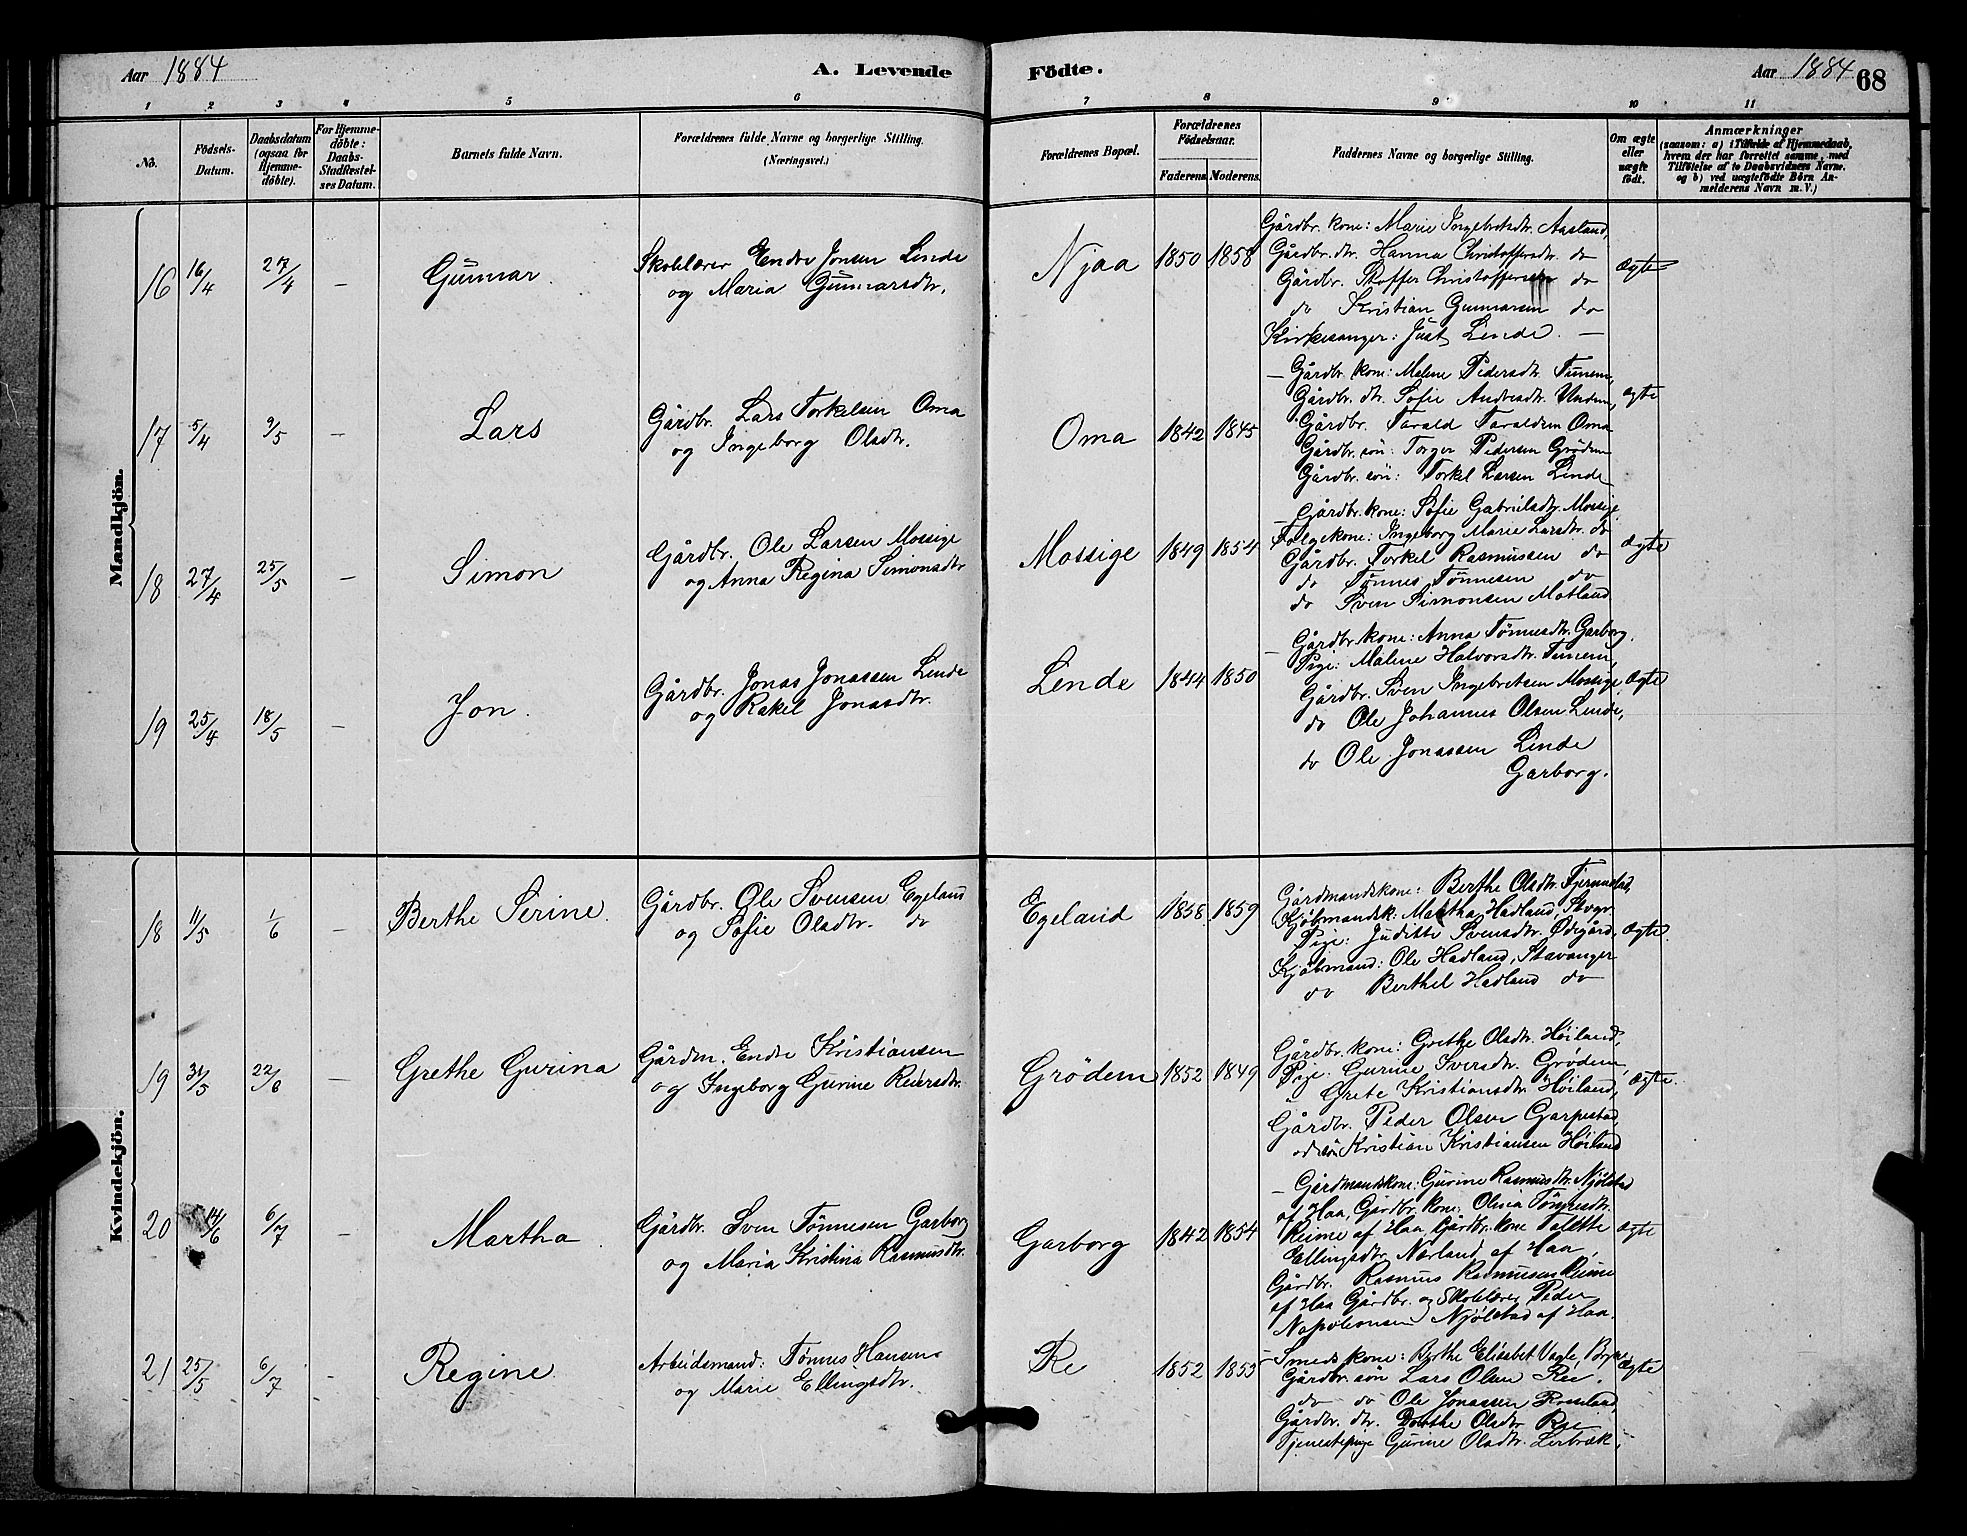 Aar 1884
A. Levende
Födte.
Aar 1884
68
1 2 3 4 5 6 7 8 9 10 11
No.
Födsels-
Datum.
Daabsdatum
(ogsaa for
Hjemme-
döbte).
For Hjemme-
döbte:
Daabs-
Stadfæstel-
ses Datum.
Barnets fulde Navn.
Forældrenes fulde Navne og borgerlige Stilling.
(Næringsvei.)
Forældrenes Bopæl.
Forældrenes
Födselsaar.
Faderens. Moderens.
Faddernes Navne og borgerlige Stilling.
Om ægte
eller
uægte
födt.
Anmærkninger
(saasom: a) i Tilfælde af Hjemmedaab,
hvem der har forrettet samme, med
Tilföielse af to Daabsvidners Navne.
og b) ved uægtefödte Börn An-
melderens Navn m. V.)
Mandkjön.
16 16/4 27/4 – Gunnar.
Skolelærer Endre Jonsen Linde
og Maria Gunnarsdtr.
Njaa 1850 1858
Gårdbr. kone: Marie Ingebretsdtr. Aasland,
Gårdbr. dtr. Hanna Christoffersdtr. do
Gårdbr. Stoffer Christoffersen do
do Kristian Gunnarsen do
Kirkesanger: Just Linde. –
ægte
17 5/4 9/5 – Lars
Gårdbr. Lars Torkelsen Oma
og Ingeborg Olsdtr.
Oma 1842 1845
– Gårdbr. kone: Malene Pedersdtr. Timem,
Gårdbr. dtr. Sofie Andreasdtr.
Gårdbr. Tarald Taraldsen Oma
Gårdbr. søn: Torger Pedersen Grödem
Gårdbr. søn: Torkel Larsen Linde
ægte
18 27/4 25/5 – Simon
Gårdbr. Ole Larsen Mossige
og Anna Regina Simonsdtr
Mossige 1849 1854
– Gårdbr. kone: Sofie Gabrielsdtr. Mossige,
Følgekone: Ingeborg Marie Larsdtr. do
Gårdbr. Torkel Rasmussen do
do Tönnes Tönnesen do
do Sven Simonsen Motland
ægte
19 25/4 18/5 – Jon.
Gårdbr. Jonas Jonassen Linde
og Rakel Jonasdtr.
Linde 1844 1850
– Gårdbr. kone: Anna Tønnesdtr. Garborg.
Pige: Malene Halvorsdtr. Timem,
Gårdbr. Sven Ingebretsen Mossige
do Ole Johannes Olsen Linde,
do Ole Jonassen Linde
Garborg.
ægte
Kvindekjön.
18 11/5 1/6 – Berthe Serine.
Gårdbr. Ole Svensen Egeland
og Sofie Olsdtr. do
Egeland 1858 1859
Gårdmandskone: Berthe Olsdtr. Tjermestad,
Kjøbmandsk: Martha Hadland, Stvgr.
Pige: Juditte Svensdtr. Ødegård,
Kjøbmand: Ole Hadland, Stavanger
do Berthel Hadland do
ægte.
19 31/5 22/6 – Grethe Gurina
Gårdm. Endre Kristiansen
og Ingeborg Gurine Reiersdtr.
Grödem 1852 1849
Gårdbr. kone: Grethe Olsdtr. Höiland,
Pige: Gurine Sversdtr. Grødem,
" Grete Kristiansdtr. Höiland,
Gårdbr. Peder Olsen Garpestad,
Kristian Kristiansen Höiland
Ægte.
20 14/6 6/7 – Martha
Gårdbr. Sven Tönnesen Garborg
og Maria Kristina Rasmusdtr.
Garborg 1842 1854
– Gårdmandskone: Gurine Rasmusdtr. Njölstad
af Haa, Gårdbr. kone: Olivia Tönnesdtr.
Reime af Haa, Gårdbr. kone Talette
Ellingsdtr. Nærland, af Haa,
Gårdbr. Rasmus Rasmussen Reime
af Haa Gårdbr. og Skolelærer Peder
Napoleonsen Njølstad af Haa.
Ægte
21 25/5 6/7 – Regine
Arbeidsmand: Tønnes Hansen
og Marie Ellingsdtr.
Re 1852 1853
– Smeds kone: Berthe Elisabet Vagle,
Gårdbr. søn Lars Olsen Ree.
do do Ole Jonassen
Gårdbr. dtr. Dorthe Olsdtr. Ree
Tjenestepige Gurine Olsdtr.
Ægte